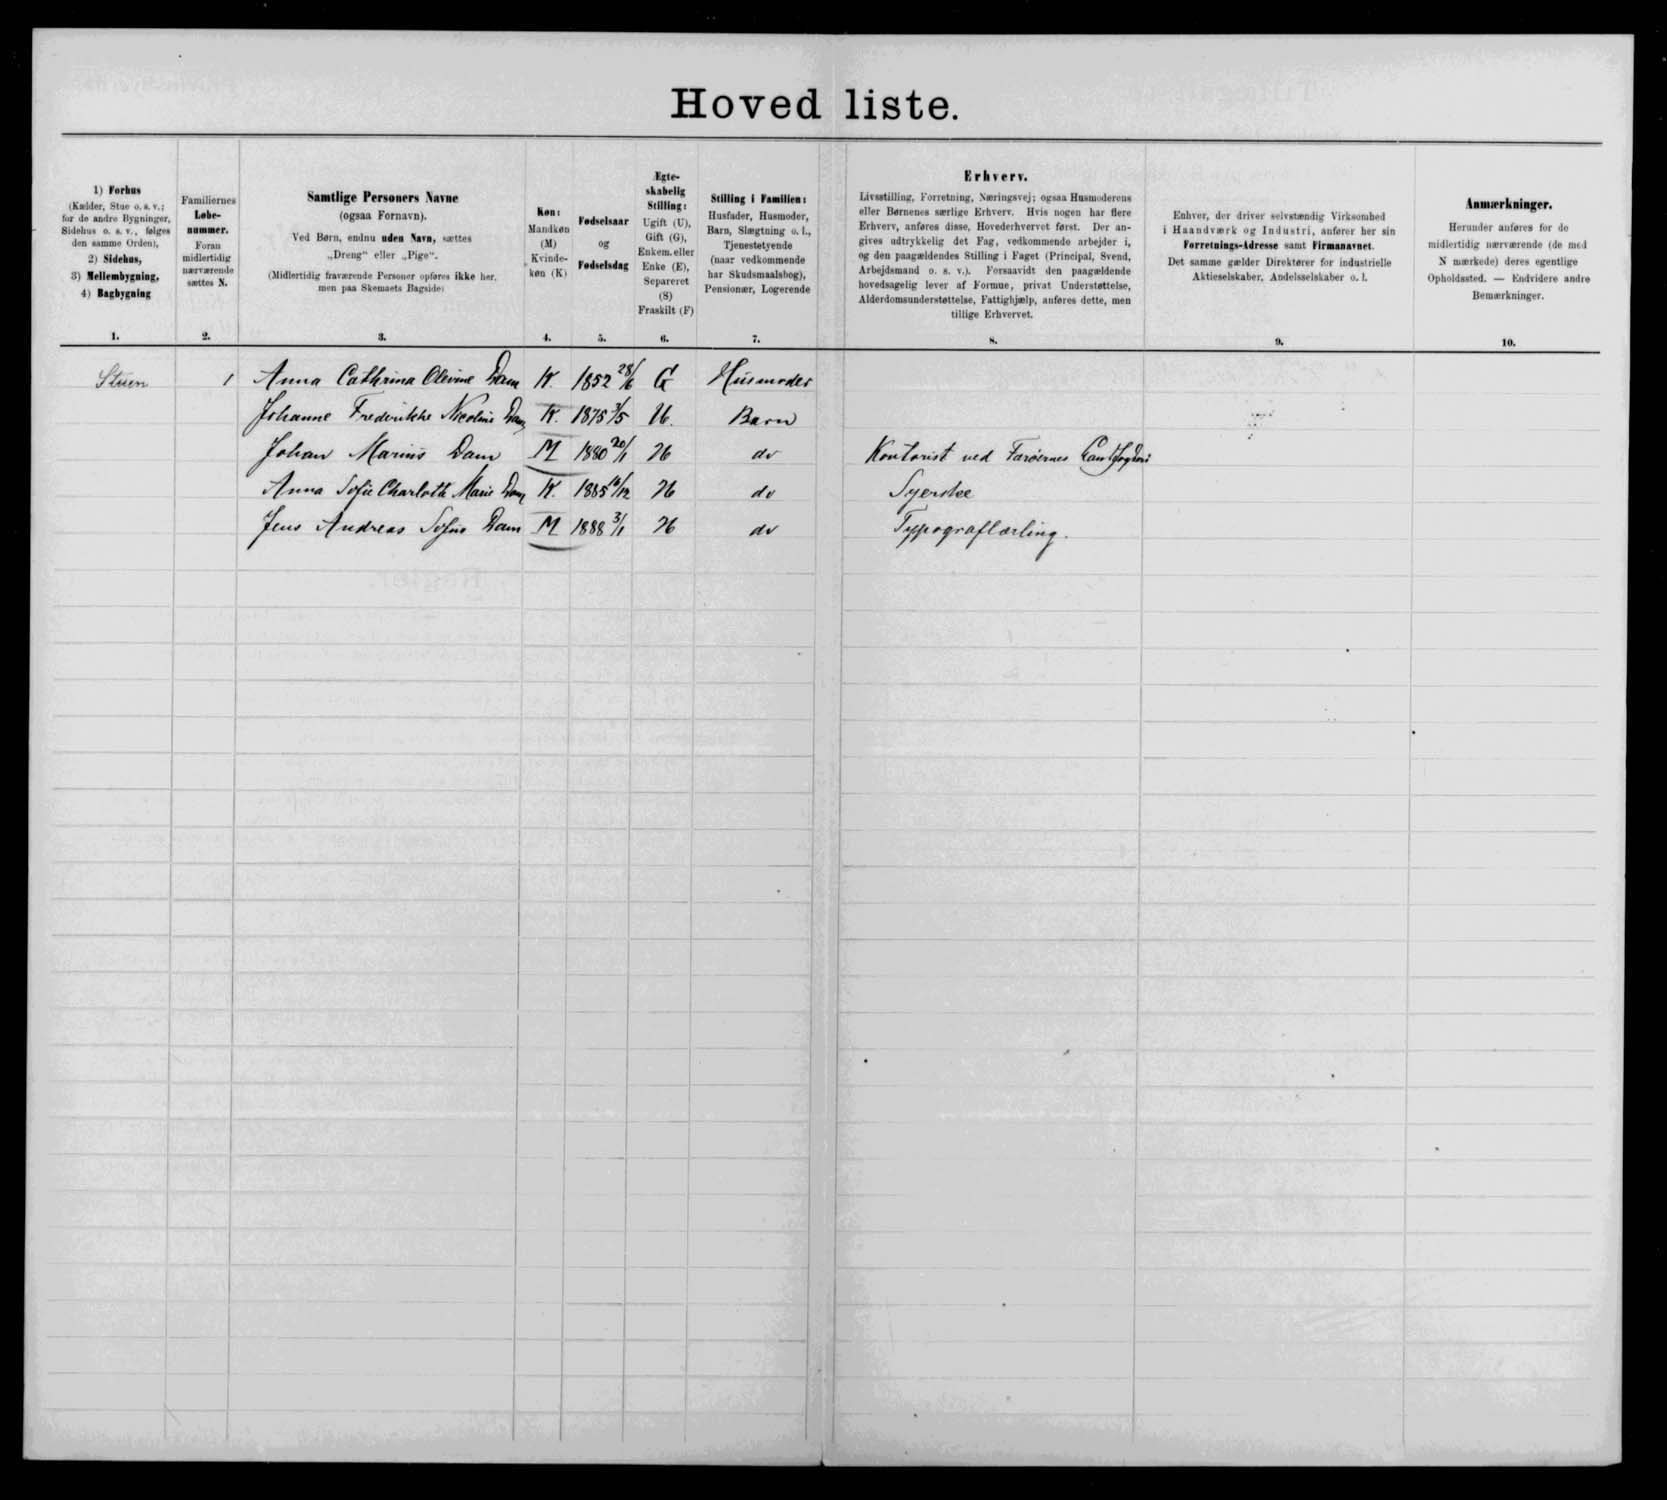 Hoved liste.
1) Forhus
(Kælder, Stue o. s. v.;
for de andre Bygninger,
Sidehus o. s. v., følges
den samme Orden),
2) Sidehus,
3) Mellembygning,
4) Bagbygning
1.
Familiernes
Løbe-
nummer.
Foran
midlertidig
nærværende
sættes N.
2.
Samtlige Personers Navne
(ogsaa Fornavn).
Ved Børn, endnu uden Navn, sættes
„Dreng“ eller „Pige“.
(Midlertidig fraværende Personer opføres ikke her,
men paa Skemaets Bagside)
3.
Køn:
Mandkøn
(M)
Kvinde-
køn (K)
4.
Fødselsaar
og
Fødselsdag
5.
Ægte-
skabelig
Stilling:
Ugift (U),
Gift (G),
Enkem. eller
Enke (E),
Separeret
(S)
Fraskilt (F)
6.
Stilling i Familien:
Husfader, Husmoder,
Barn, Slægtning o. l.,
Tjenestetyende
(naar vedkommende
har Skudsmaalsbog),
Pensionær, Logerende
7.
Erhverv.
Livsstilling, Forretning, Næringsvej; ogsaa Husmoderens
eller Børnenes særlige Erhverv. Hvis nogen har flere
Erhverv, anføres disse, Hovederhvervet først. Der an-
gives udtrykkelig det Fag, vedkommende arbejder i,
og den paagældendes Stilling i Faget (Principal, Svend,
Arbejdsmand o. s. v.). Forsaavidt den paagældende
hovedsagelig lever af Formue, privat Understøttelse,
Alderdomsunderstøttelse, Fattighjælp, anføres dette, men
tillige Erhvervet.
8.
Enhver, der driver selvstændig Virksomhed
i Haandværk og Industri, anfører her sin
Forretnings-Adresse samt Firmanavnet.
Det samme gælder Direktører for industrielle
Aktieselskaber, Andelsselskaber o. l.
9.
Anmærkninger.
Herunder anføres for de
midlertidig nærværende (de med
N mærkede) deres egentlige
Opholdssted. — Endvidere andre
Bemærkninger.
10.
Stuen 1 Anna Cathrina Olevine Dam K. 1852 28/6 G Husmoder
Johanne Frederikke Nicoline Dam K. 1875 3/5 U. Barn
Johan Marius Dam M 1880 20/1 U do Kontorist ved Færøernes Landfogderi
Anna Sofie Charlotte Marie Dam K. 1885 16/12 U do Syerske
Jens Andreas Sofus Dam M 1888 3/1 U do Typograflærling.